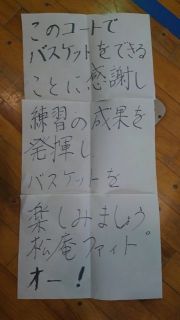 このコートで
バスケットをできる
ことに感謝し
練習の成果を
発揮し
バスケットを
楽しみましょう
松庵ファイト
オー！